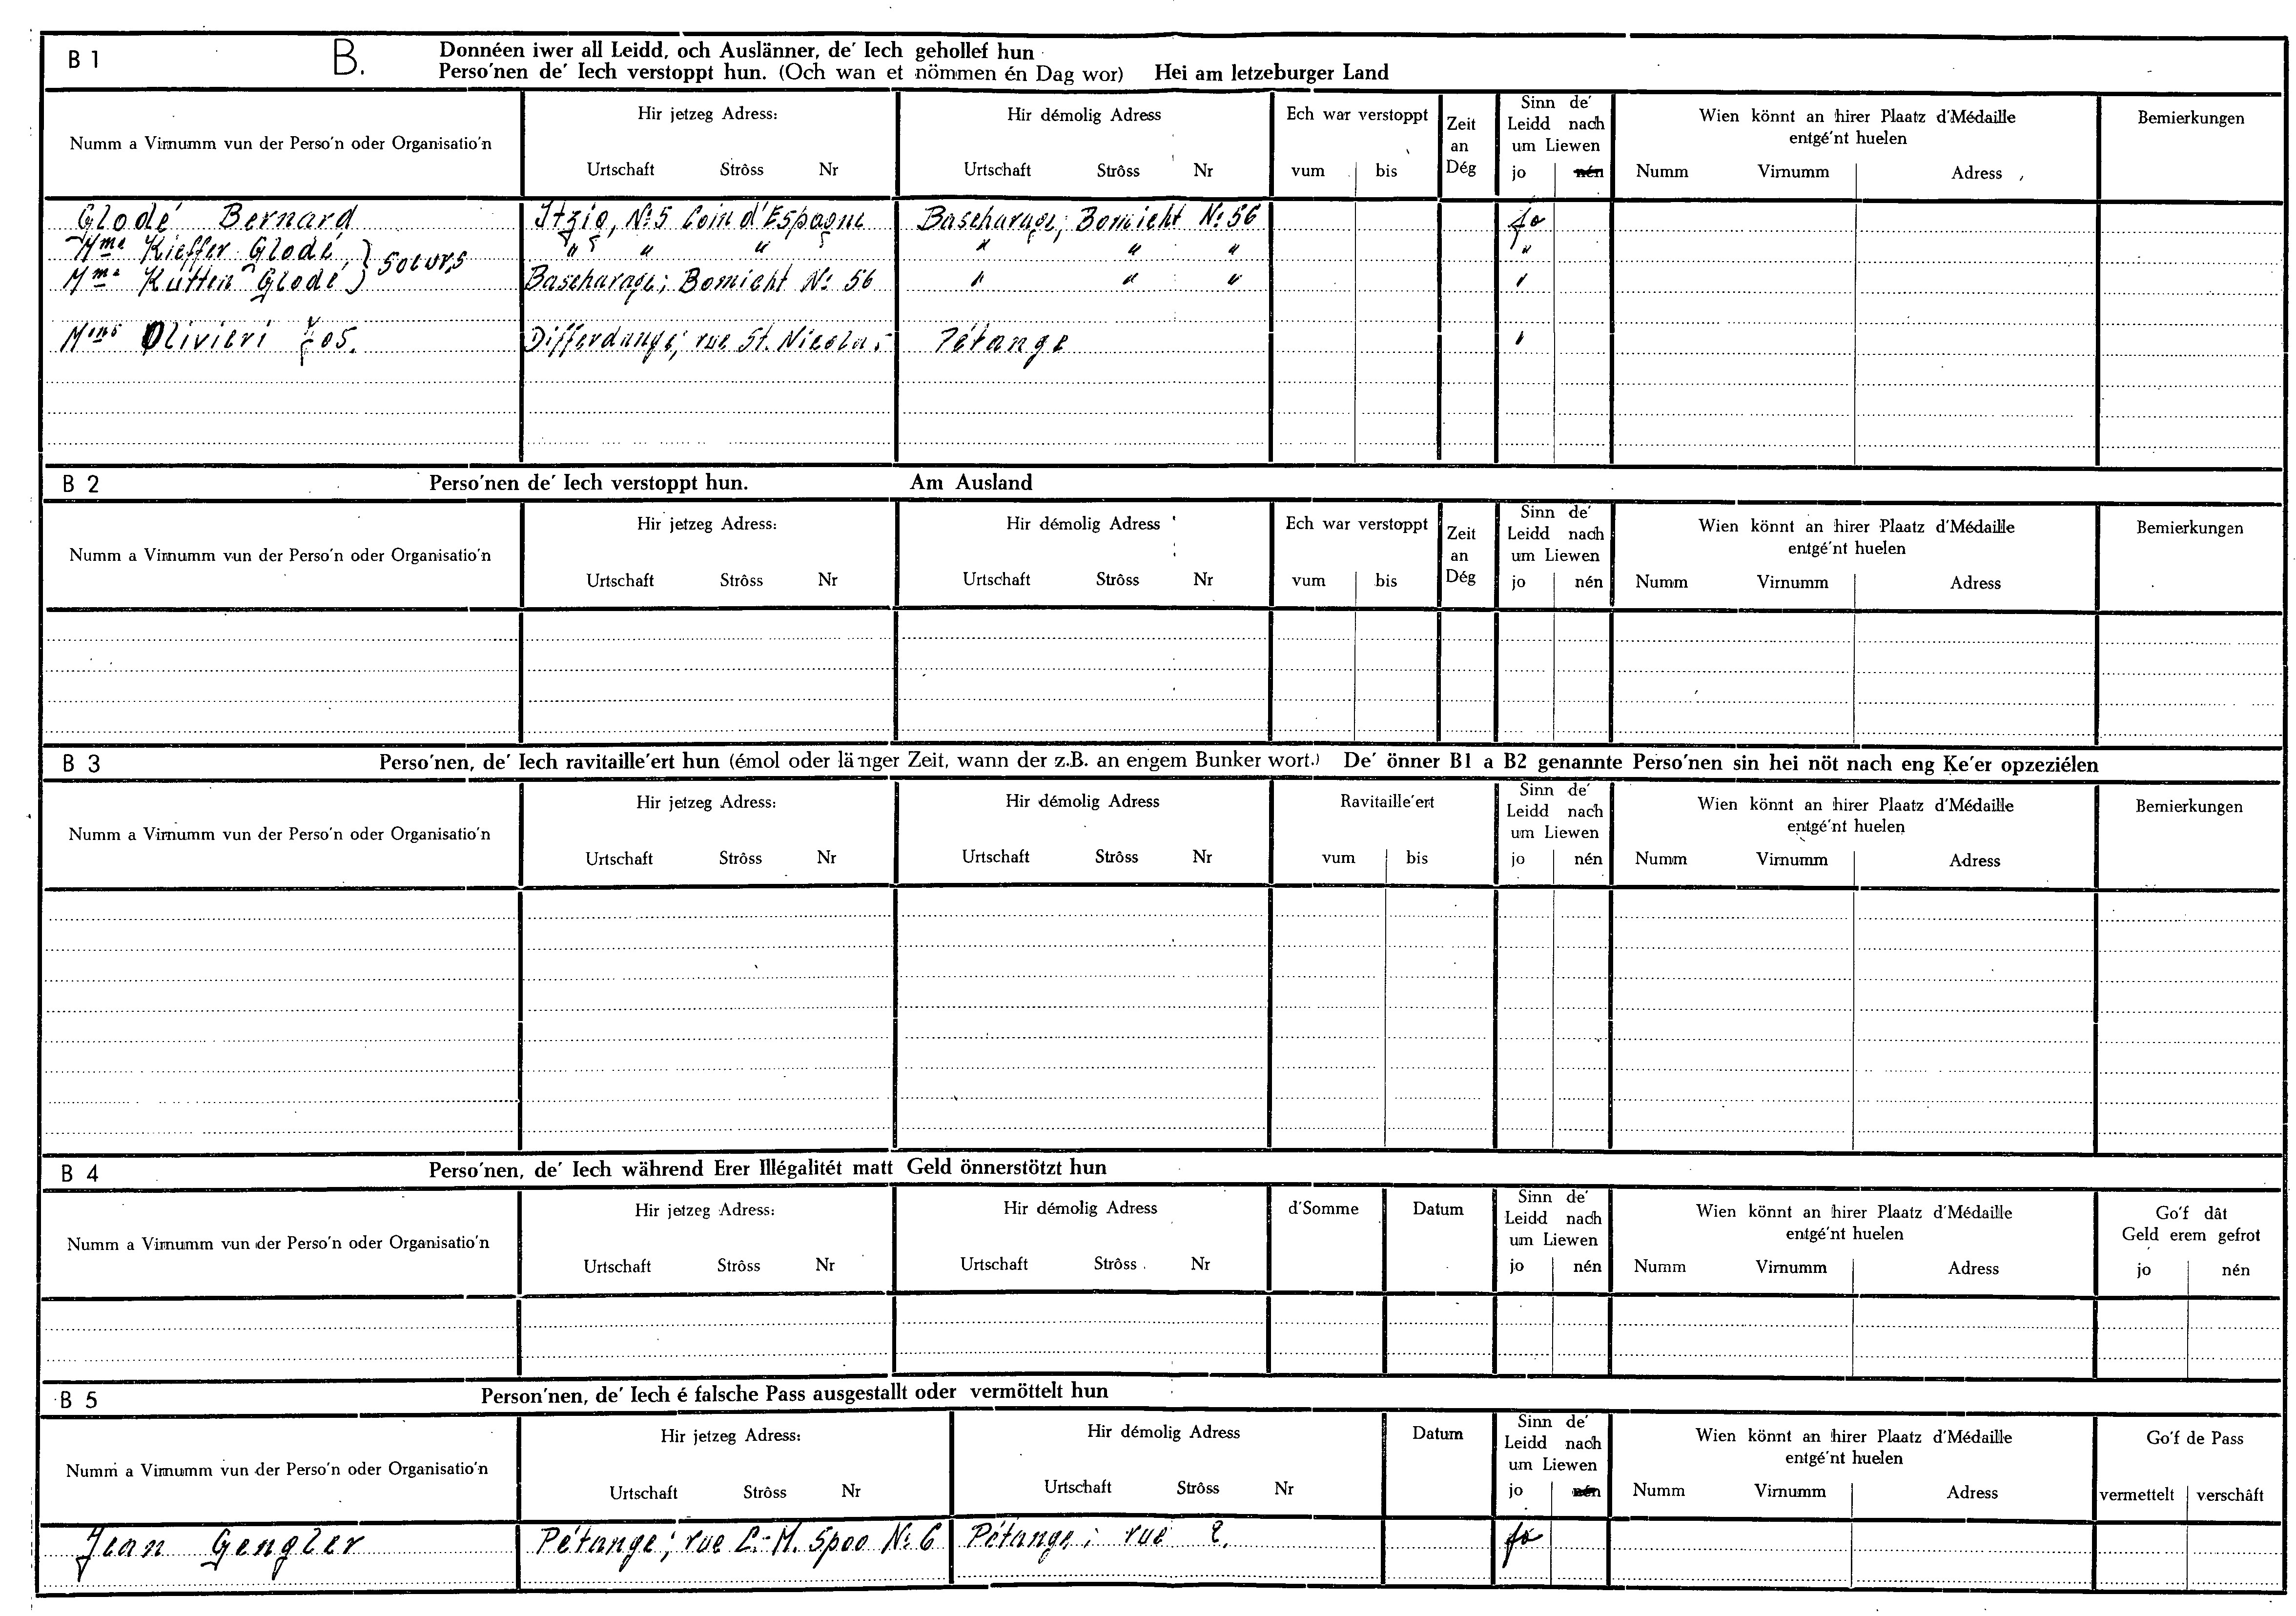 B 1 B. Donnéen iwer all Leidd, och Auslänner, de′ Iech gehollef hun
Perso′nen de′ Iech verstoppt hun. (Och wan et nömmen én Dag wor) Hei am letzeburger Land
Numm a Virnumm vun der Perso′n oder Organisatio′n
Hir jetzeg Adress:
Urtschaft Strôss Nr
Hir démolig Adress
Urtschaft Strôss Nr
Ech war verstoppt
vum bis
Zeit
an
Dég
Sinn de′
Leidd nach
um Liewen
jo nén
Wien könnt an hirer Plaatz d′Médaille
entgé′nt huelen
Numm Virnumm Adress
Bemierkungen
Glodé Bernard Itzig, N:5 Coin d'Espagne Bascharage; Bomicht N:56 jo
Mme Kieffer-Glodé, } soeurs " " " " " " "
Mme Kütten-Glodé } Bascharage; Bomicht N: 56 " " " "
Mme Olivieri Jos. Differdange; rue St. Nicolas Pétange "
B 2 Perso′nen de′ Iech verstoppt hun. Am Ausland
Numm a Virnumm vun der Perso′n oder Organisatio′n
Hir jetzeg Adress:
Urtschaft Strôss Nr
Hir démolig Adress
Urtschaft Strôss Nr
Ech war verstoppt
vum bis
Zeit
an
Dég
Sinn de′
Leidd nach
um Liewen
jo nén
Wien könnt an hirer Plaatz d′Médaille
entgé′nt huelen
Numm Virnumm Adress
Bemierkungen
B 3 Perso′nen, de′ Iech ravitaille′ert hun (émol oder länger Zeit, wann der z.B. an engem Bunker wort.) De′ önner B1 a B2 genannte Perso′nen sin hei nöt nach eng Ke′er opzeziélen
Numm a Virnumm vun der Perso′n oder Organisatio′n
Hir jetzeg Adress:
Urtschaft Strôss Nr
Hir démolig Adress
Urtschaft Strôss Nr
Ravitaille′ert
vum bis
Sinn de′
Leidd nach
um Liewen
jo nén
Wien könnt an hirer Plaatz d′Médaille
entgé′nt huelen
Numm Virnumm Adress
Bemierkungen
B 4 Perso′nen, de′ Iech während Erer Illégalitét matt Geld önnerstötzt hun
Numm a Virnumm vun der Perso′n oder Organisatio′n
Hir jetzeg Adress:
Urtschaft Strôss Nr
Hir démolig Adress
Urtschaft Strôss Nr
d′Somme
Datum
Sinn de′
Leidd nach
um Liewen
jo nén
Wien könnt an hirer Plaatz d′Médaille
entgé′nt huelen
Numm Virnumm Adress
Go′f dât
Geld erem gefrot
jo nén
B 5 Person′nen, de′ Iech é falsche Pass ausgestallt oder vermöttelt hun
Numm a Virnumm vun der Perso′n oder Organisatio′n
Hir jetzeg Adress:
Urtschaft Strôss Nr
Hir démolig Adress
Urtschaft Strôss Nr
Datum
Sinn de′
Leidd nach
um Liewen
jo nén
Wien könnt an hirer Plaatz d′Médaille
entgé′nt huelen
Numm Virnumm Adress
Go′f de Pass
vermettelt verschâft
Jean Gengler Pétange; rue C.-M. Spoo N:6 Pétange; rue ?. jo